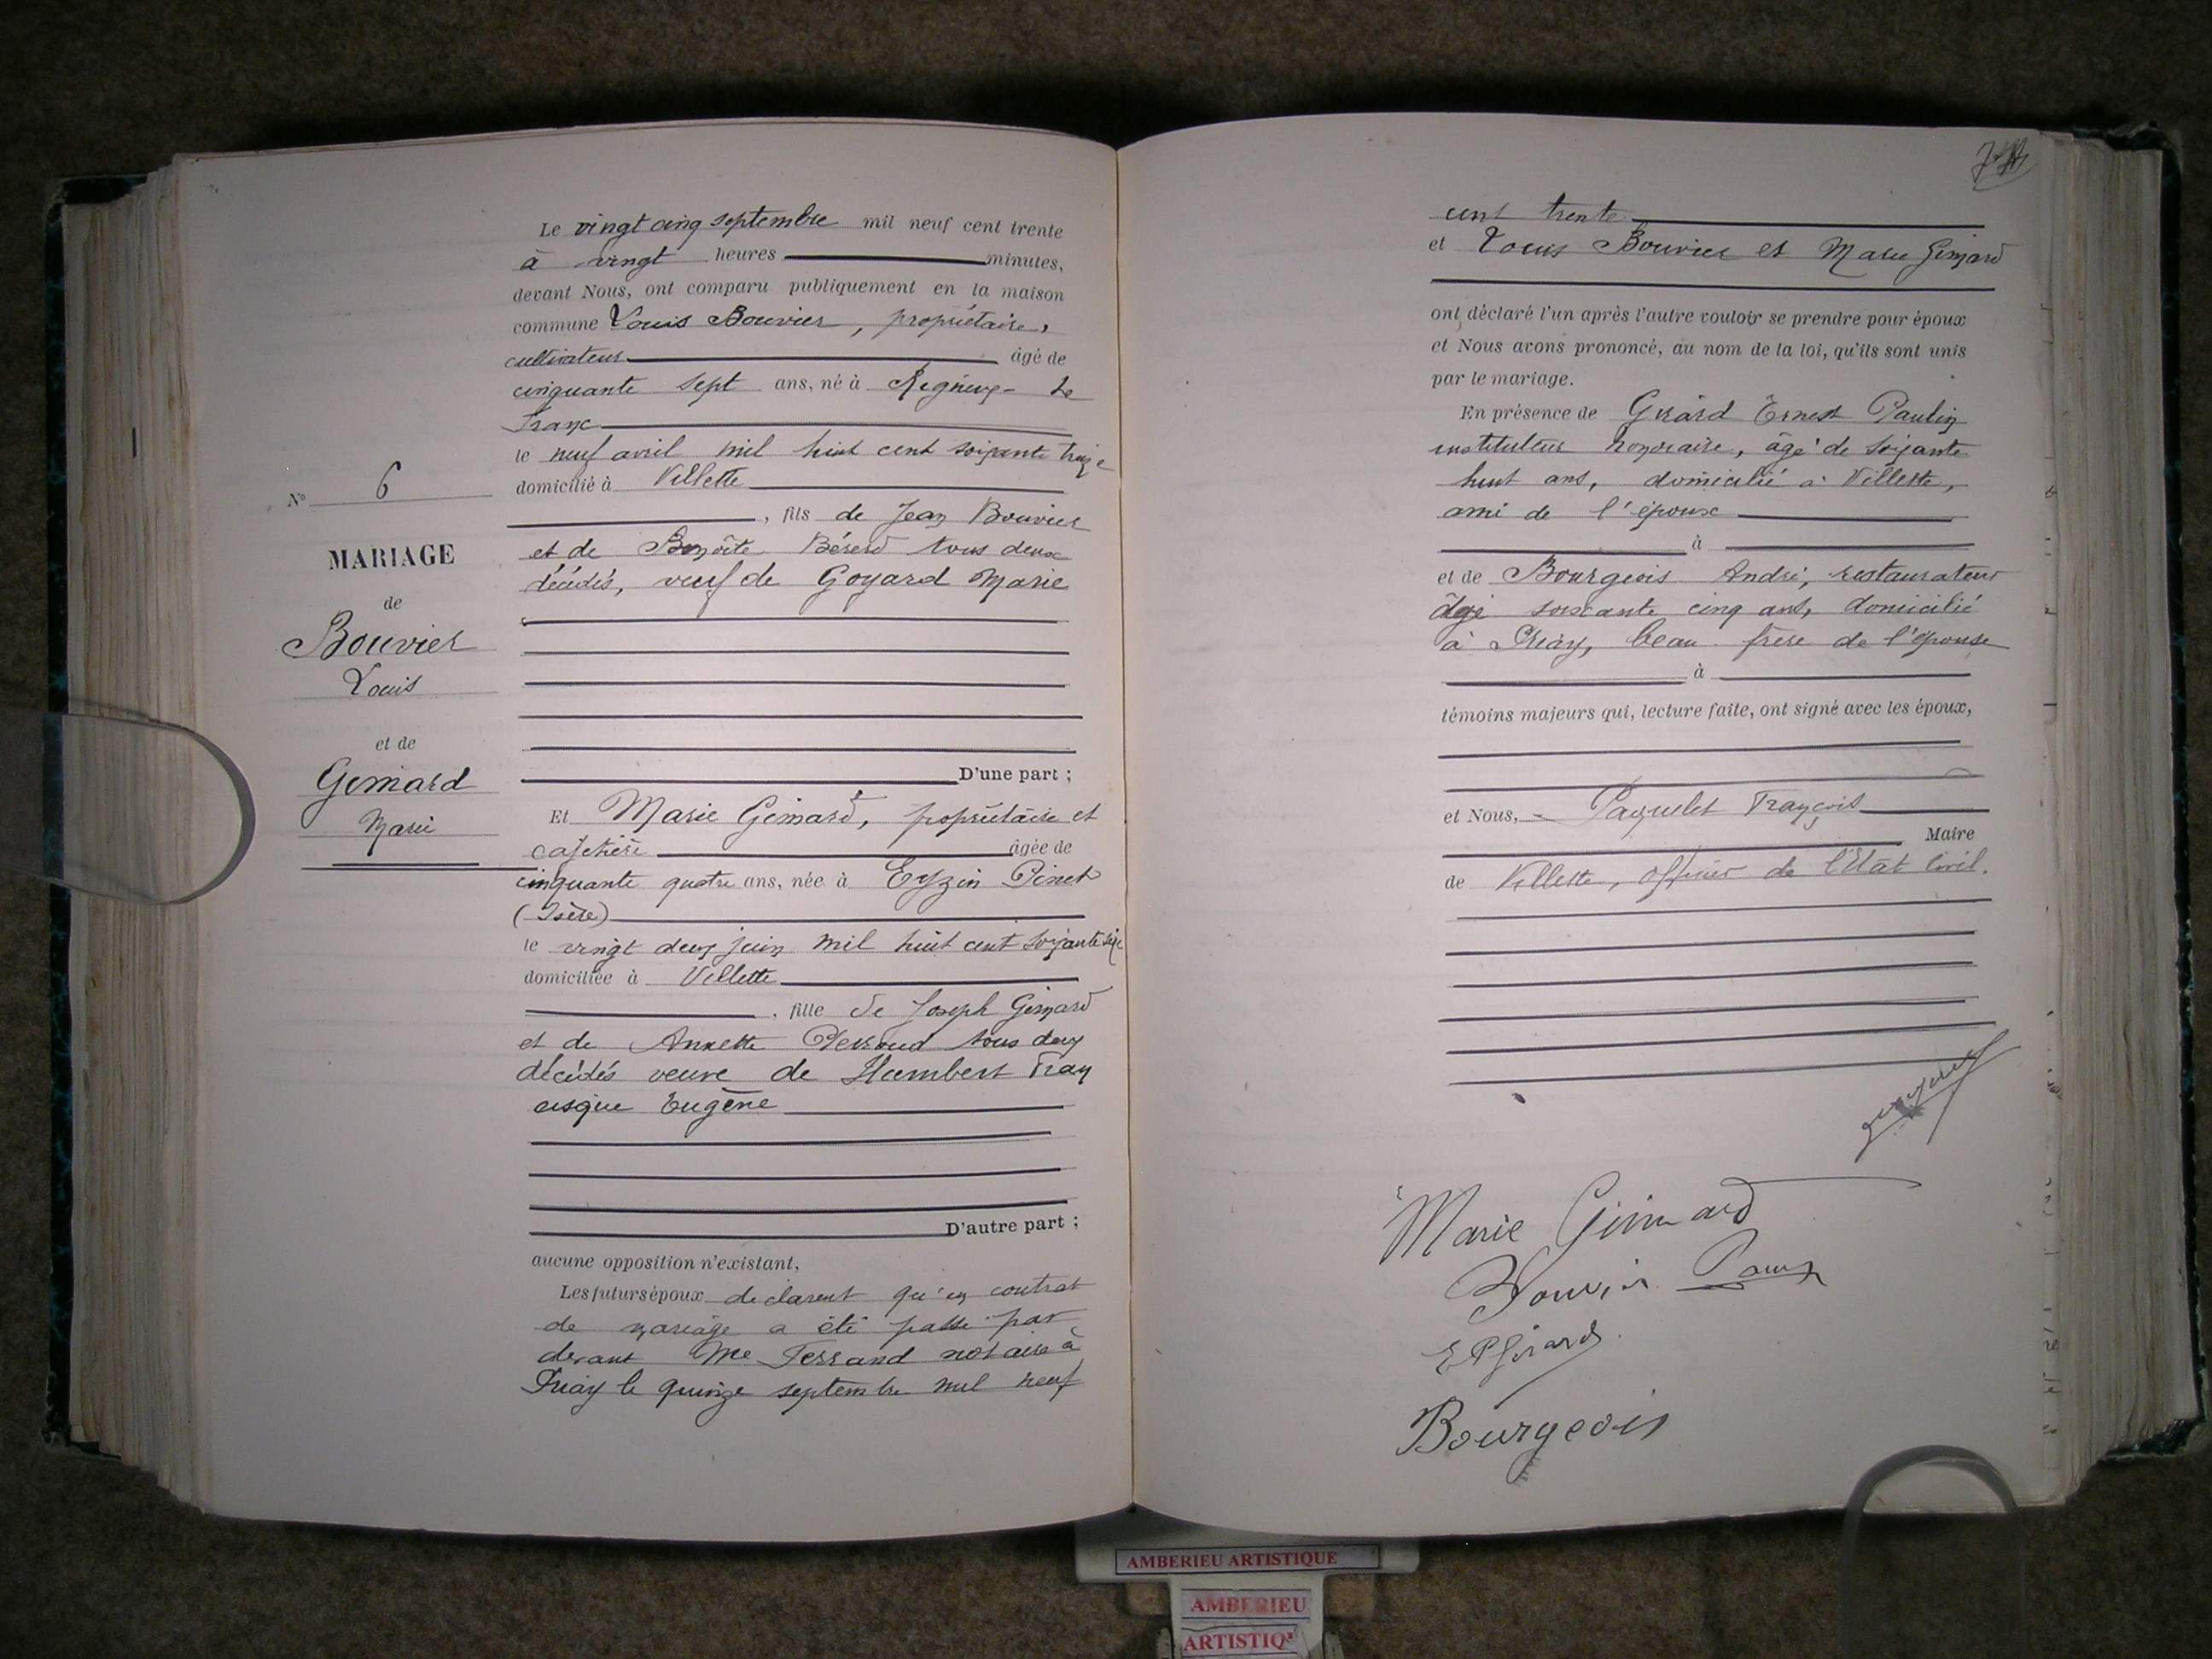 Le vingt cinq septembre mil neuf cent trente
à vingt heures minutes,
devant Nous, ont comparu publiquement en la maison
commune Louis Bouvier, propriétaire,
cultivateur âgé de
cinquante sept ans, né à Rigneux-le
Franc
le neuf avril mil huit cent soixante treize
domicilié à Villette
, fils de Jean Bouvier
et de Benoîte Bérerd tous deux
décédés, veuf de Goyard Marie
N° 6
MARIAGE
de
Bouvier
Louis
et de
Gimard
Marie
D'une part ;
Et Marie Gimard, propriétaire et
cafetière âgée de
cinquante quatre ans, née à Eyzin Pinet
(Isère)
le vingt deux juin mil huit cent soixante seize
domiciliée à Villette
, fille de Joseph Gimard
et de Annette Perroud tous deux
décédés veuve de Humbert Fran
cisque Eugène
D'autre part ;
aucune opposition n'existant,
Les futurs époux déclarent qu'un contrat
de mariage a été passé par
devant Me Ferrand notaire à
Priay le quinze septembre mil neuf
cent trente
et Louis Bouvier et Marie Gimard
ont déclaré l'un après l'autre vouloir se prendre pour époux
et Nous avons prononcé, au nom de la loi, qu'ils sont unis
par le mariage.
En présence de Girard Ernest Paulin
instituteur honoraire, âgé de soixante
huit ans, domicilié à Villette,
ami de l'époux
à
et de Bourgeois André, restaurateur
âgé soixante cinq ans, domicilié
à Priay, beau-frère de l'épouse
à
témoins majeurs qui, lecture faite, ont signé avec les époux,
et Nous, Paquelet François
Maire
de Villette, officier de l'Etat Civil.
Marie Gimard
Bouvier Louis
E P Girard
Bourgeois
AMBERIEU ARTISTIQUE
AMBERIEU
ARTISTIQ